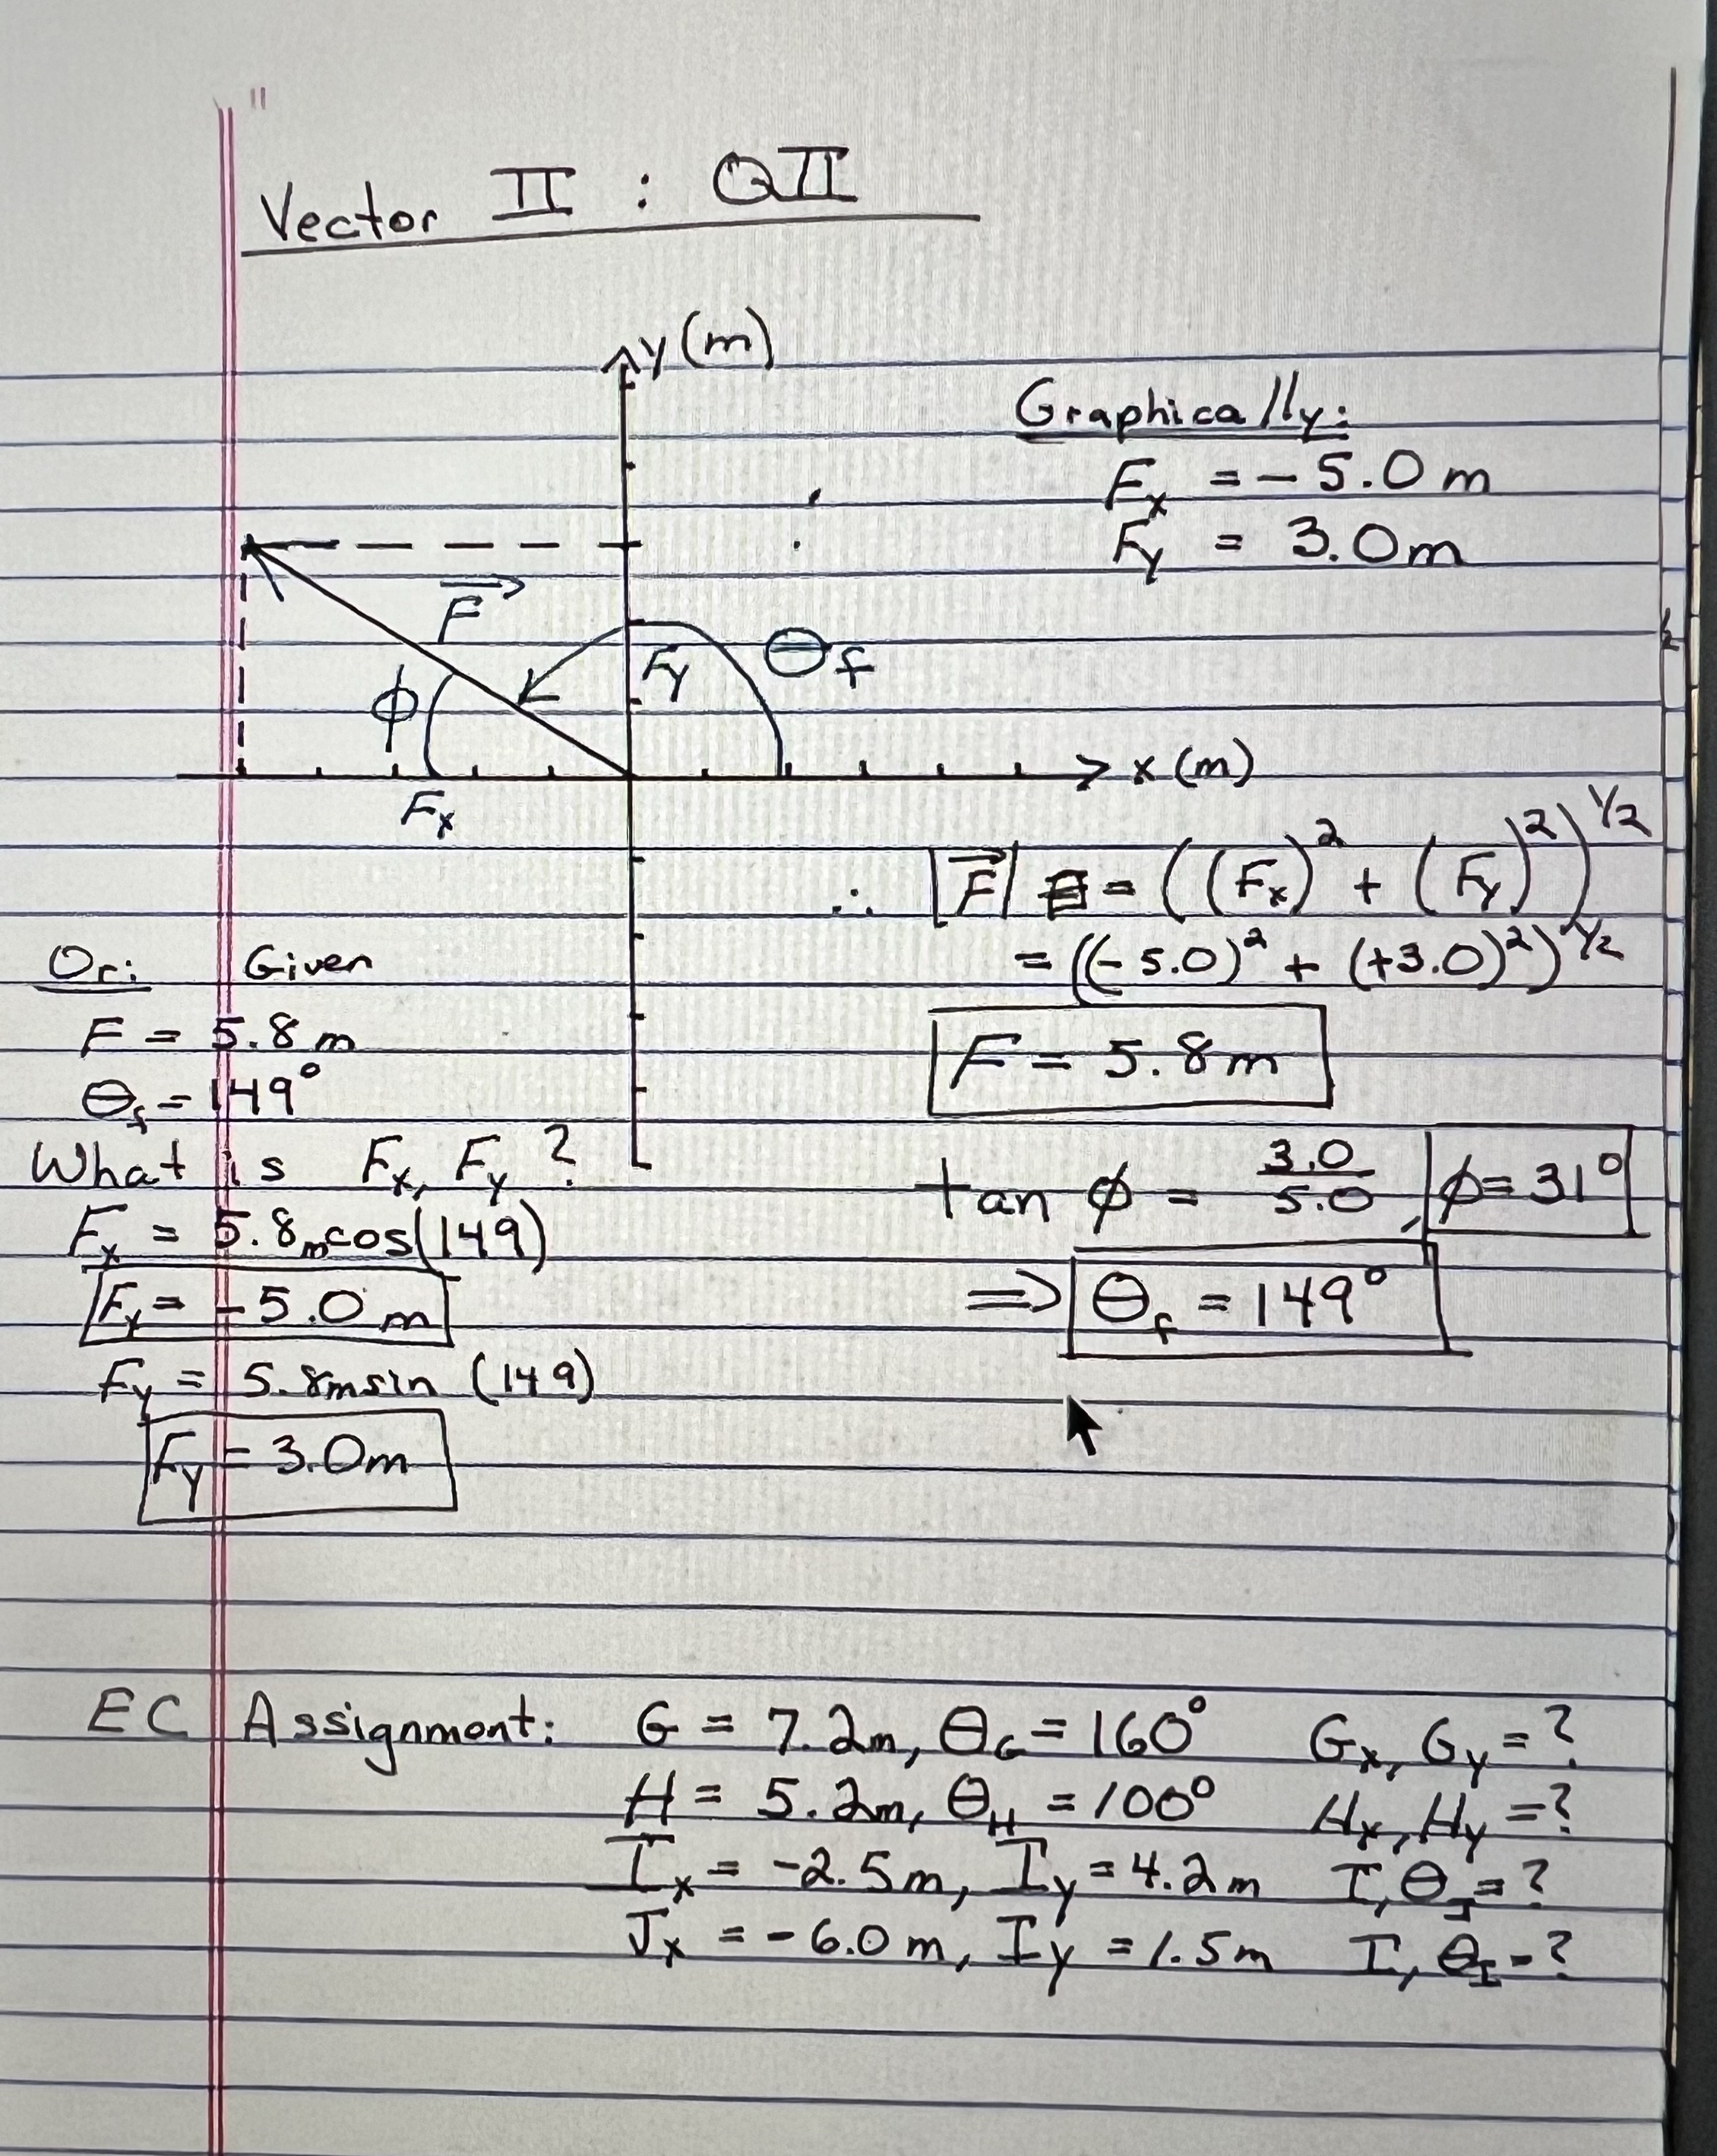 Vector II : QII
y(m)
Graphically:
Fx = - 5.0 m
Fy = 3.0m
F
ϕ
Fy
Θf
x(m)
Fx
∴ |F| = ((Fx)² + (Fy)²)^1/2
= ((-5.0)² + (+3.0)²)^1/2
F = 5.8m
tan ϕ = 3.0/5.0, ϕ = 31°
⇒ Θf = 149°
Or: Given
F = 5.8 m
Θf = 149°
What is Fx, Fy ?
Fx = 5.8m cos(149)
Fx = -5.0 m
Fy = 5.8m sin (149)
Fy = 3.0m
EC Assignment: G = 7.2m, ΘG = 160° Gx, Gy = ?
H = 5.2m, ΘH = 100° Hx, Hy = ?
Ix = -2.5m, Iy = 4.2m I, ΘI = ?
Jx = -6.0m, Iy = 1.5m I, ΘI = ?